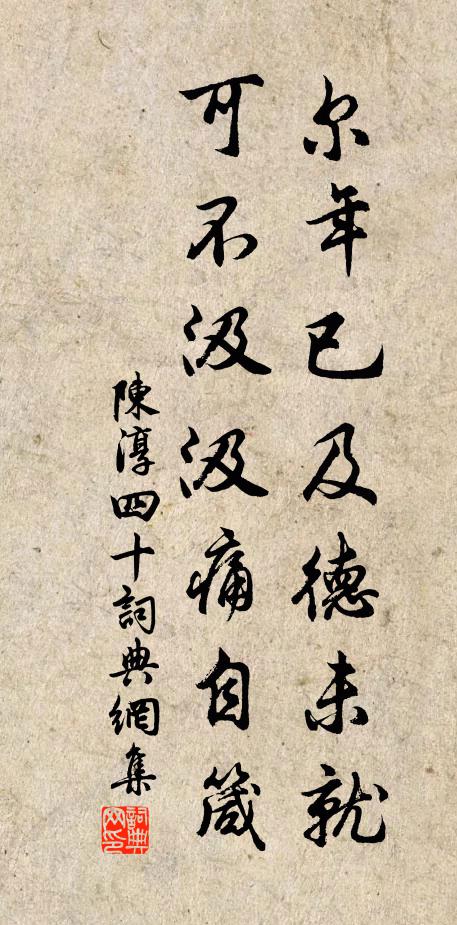 尔年已及德未就
可不汲汲痛自箴
陳淳四十詞典網集
詞典网印